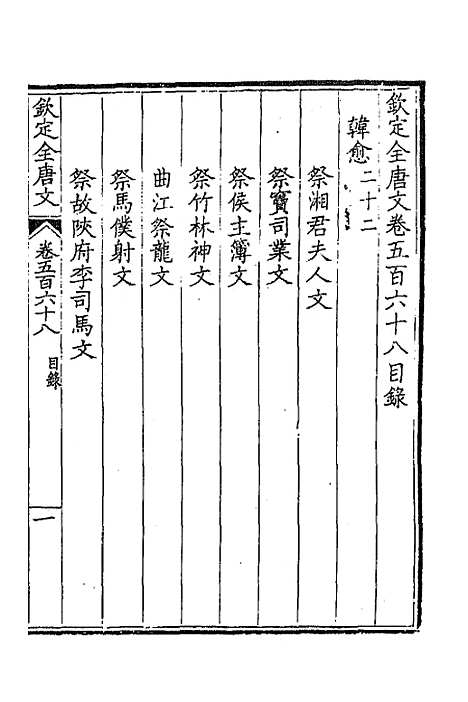 欽定全唐文卷五百六十八目錄
韓愈二十二
祭湘君夫人文
祭竇司業文
祭侯主簿文
祭竹林神文
曲江祭龍文
祭馬僕射文
祭故陝府李司馬文
欽定全唐文
卷五百六十八
目錄
一